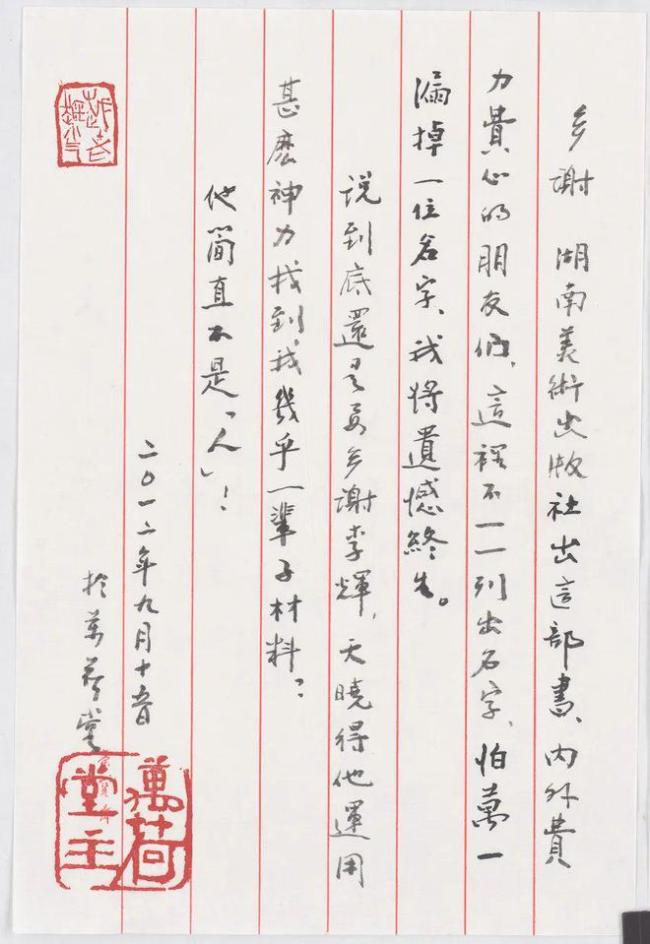 多謝 湖南美術出版社出這部書、内外費
力費心的朋友们、這裡不一一列出名字、怕萬一
漏掉一位名字、我將遺憾終生。
说到底還是要多謝李輝,天曉得他運用
甚麽神力找到我幾乎一輩子材料?
他简直不是「人」!
二〇一二年九月十五日
於萬荷堂
萬荷堂主